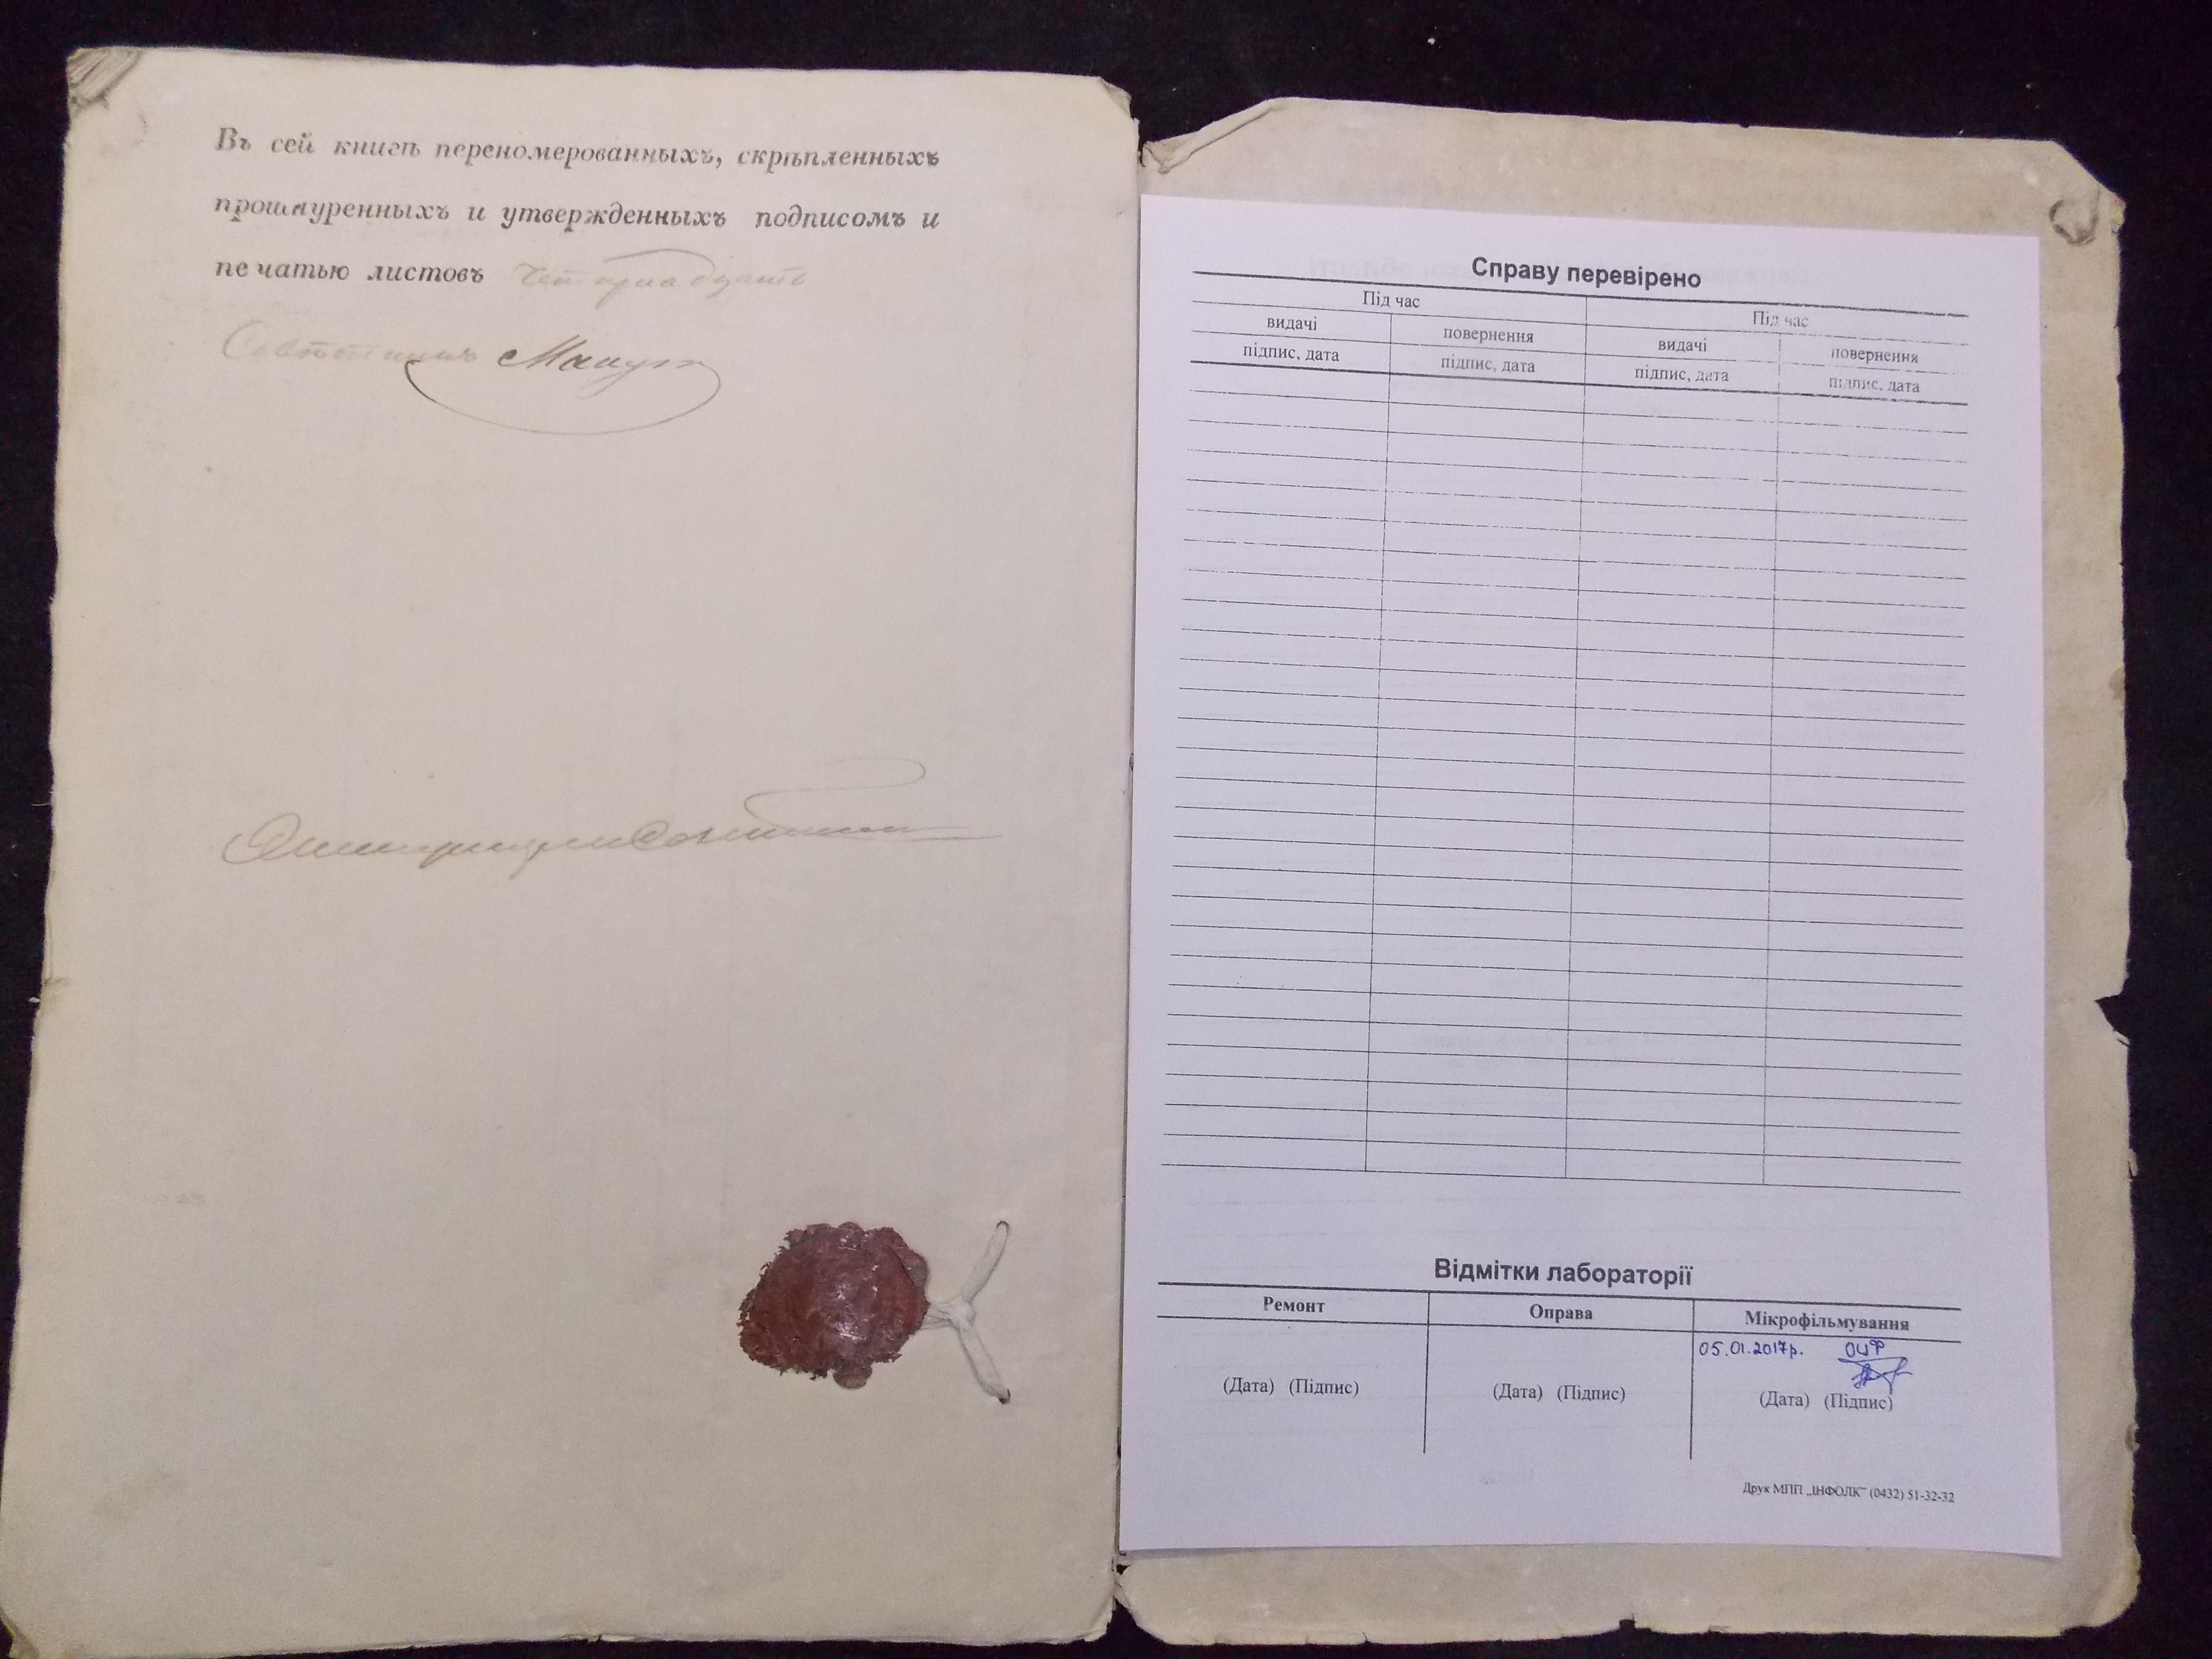 Въ сей книгѣ переномерованныхъ, скрѣпленныхъ
прошнуренныхъ и утвержденныхъ подписомъ и
печатью листовъ четырнадцать
Совѣтникъ
Справу перевірено
Під час Під час
видачі повернення видачі повернення
підпис, дата підпис, дата підпис, дата підпис, дата
Відмітки лабораторії
Ремонт Оправа Мікрофільмування
05.01.2017р. ОЦФ
(Дата) (Підпис) (Дата) (Підпис) (Дата) (Підпис)
Друк МПП „ІНФОЛК" (0432) 51-32-32